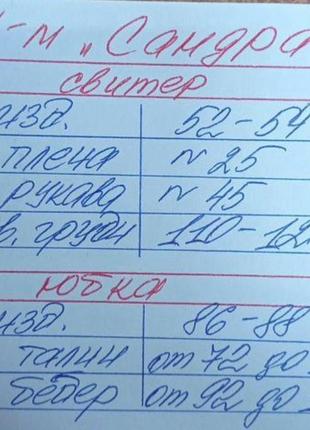 -м „Сандра
свитер
изд. 52-54
плеча ~ 25
рукава ~ 45
в. груди 110-12
юбка
изд. 86-88
талии от 72 до
бедер от 92 до